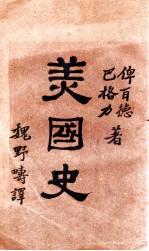 俾百德
巴格力 著
美國史
魏野疇譯